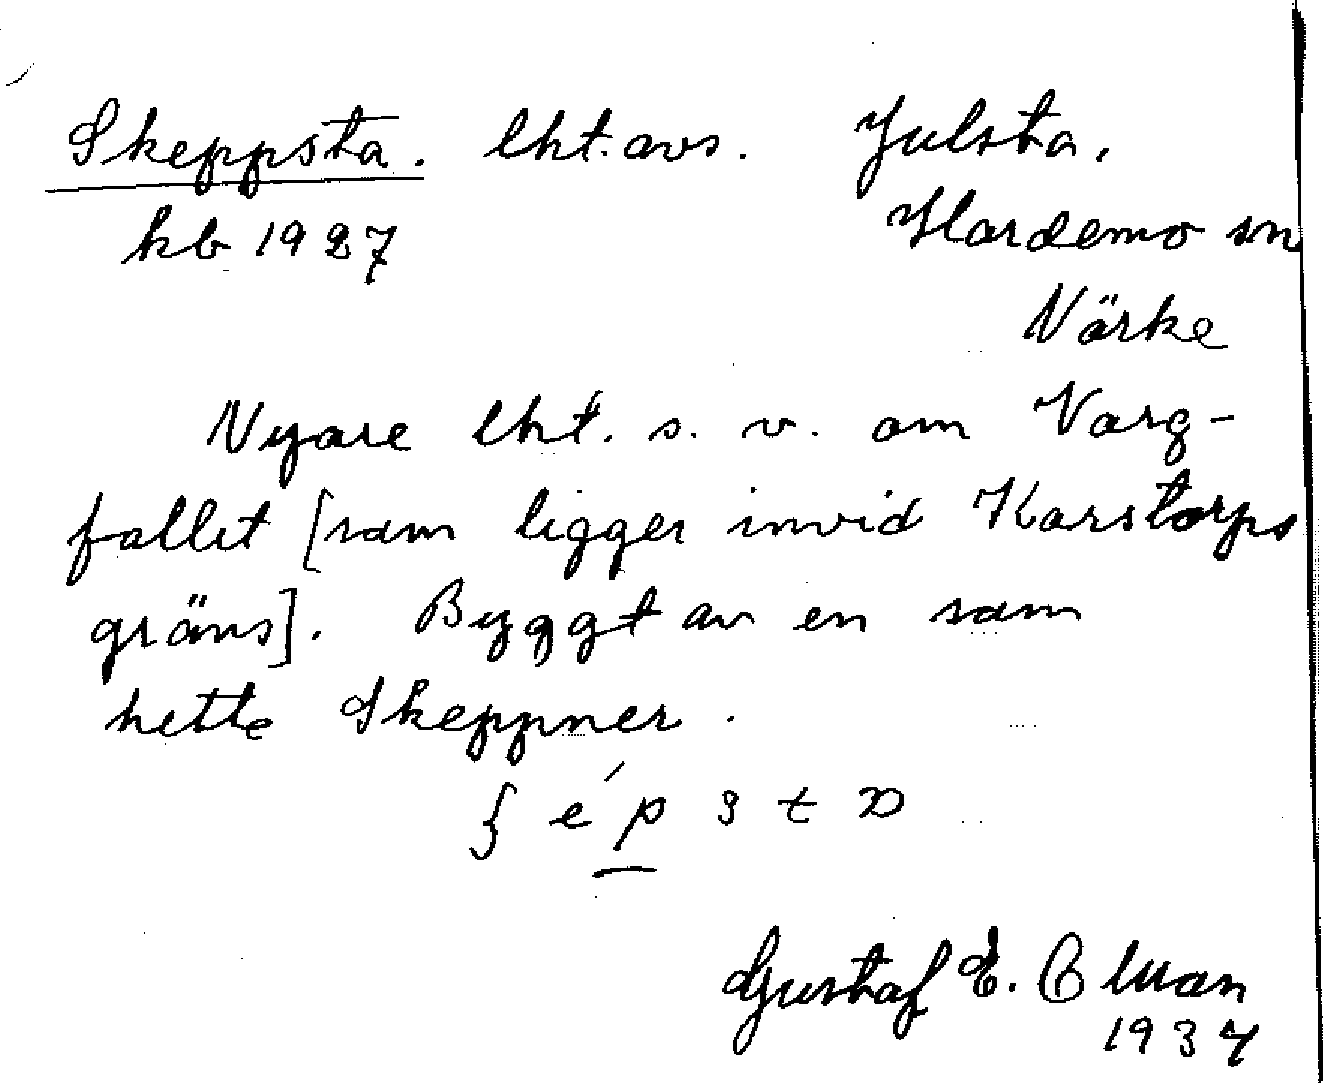 Skeppsta. lht. avs. Julsta,
kb 1927 Hardemo sn
Närke
Nyare lht. s. v. om Varg-
fallet [som ligger invid Karstorps
gräns]. Byggt av en som
hette Skeppner.
ʃ é p s t a
Gustaf E.
1937